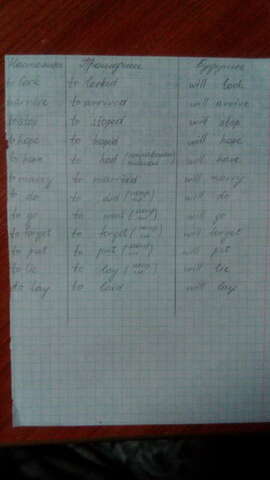 Настоящее Прошедшее Будущее
to look to looked will look
arrive to arrived will arrive
to stoped will stop
to hope to hoped will hope
to have to had will have
to marry to married will marry
to do to did will do
to go to will go
to forget to forgot will forget
to put to put will put
to lie to lay will lie
to lay to laid will lay